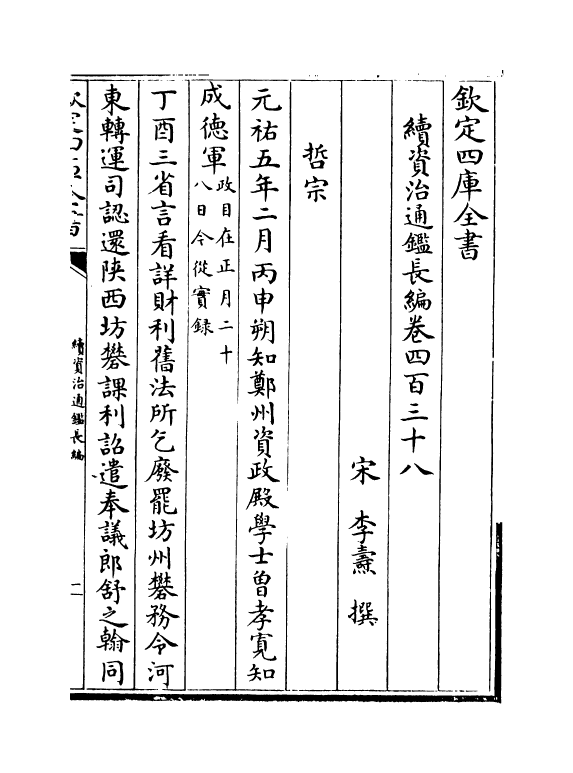 欽定四庫全書
續資治通鑑長編卷四百三十八
宋 李燾 撰
哲宗
元祐五年二月丙申朔知鄭州資政殿學士曾孝寛知
成德軍
政目在正月二十
八日今從實録
丁酉三省言看詳財利舊法所乞廢罷坊州礬務令河
東轉運司認還陜西坊礬課利詔遣奉議郎舒之翰同
欽定四庫全書
續資治通鑑長編
二